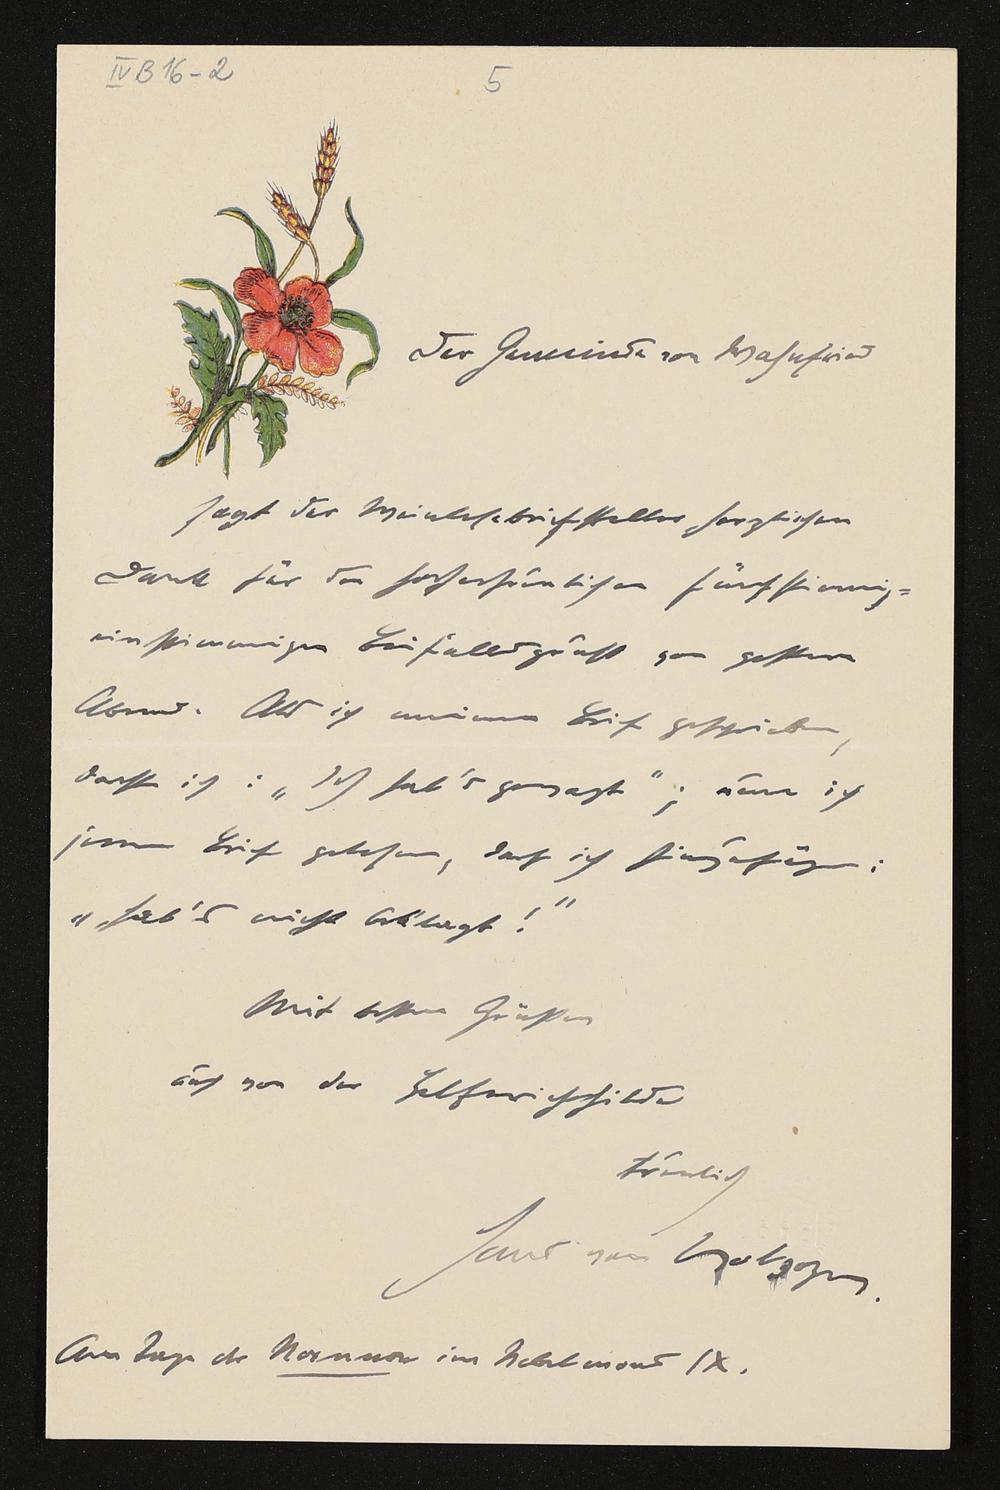 IV B 16-2
5
Der Gemeinde von Wahnfried
sagt der briefsteller herzlichen
Dank für den fünfstimmig-
einstimmigen Beifallsgruß von gestern
Abend. Als ich meinen Brief geschrieben,
dacht ich: „Ich hab's gewagt"; nun ich
jenen Brief gelesen, darf ich hinzufügen:
„hab's nicht beklagt!"
Mit besten Grüßen
auch von der
treulich
Hans von Wolzogen.
Am Tage der Nornen im Nebelmond IX.